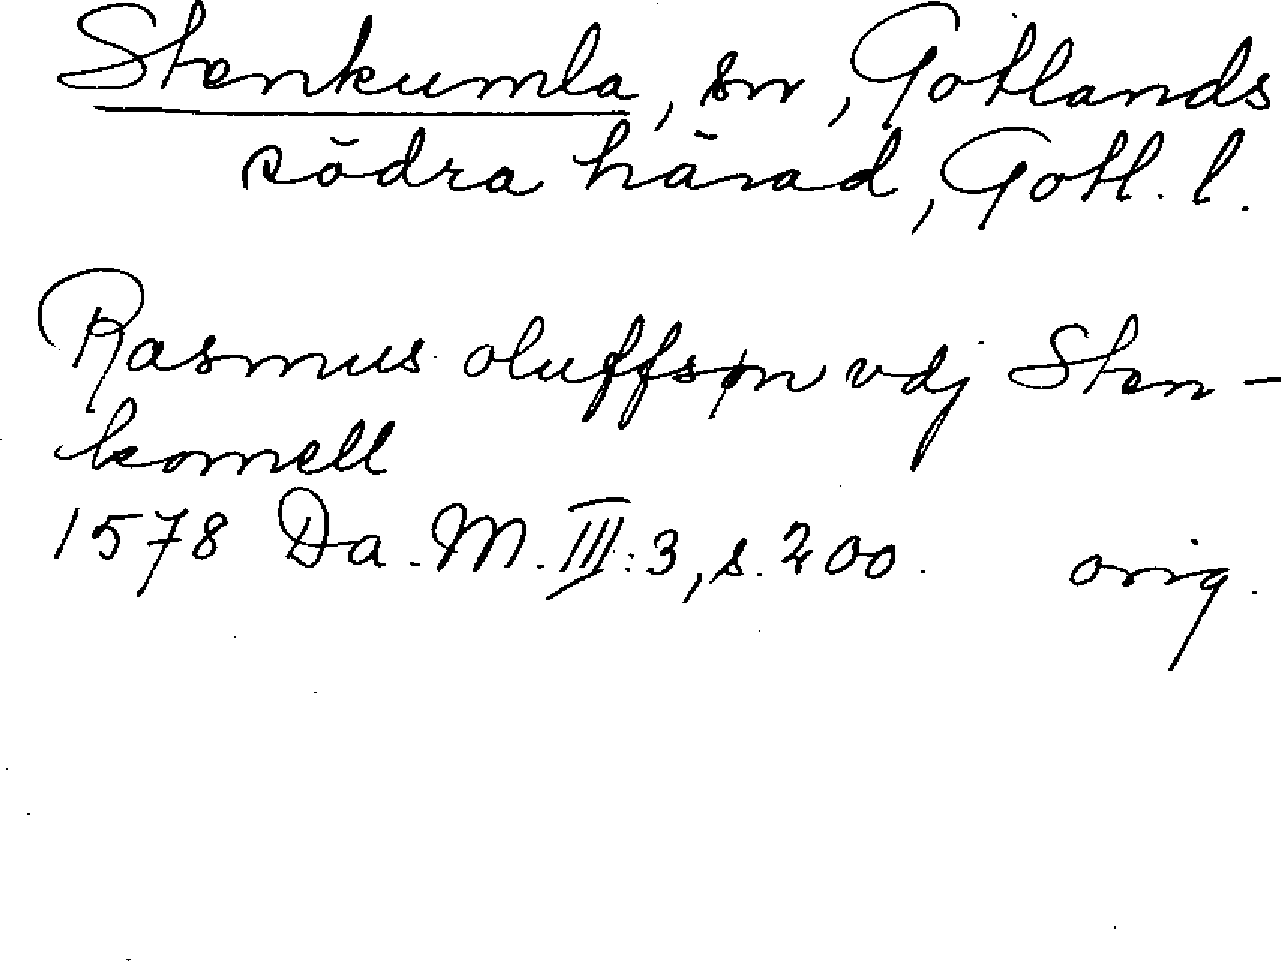 Stenkumla, sn, Gotlands
södra härad, Gotl. l.
Rasmus oluffsøn vdj Sten-
komell
1578 Da. M. III:3, s. 200. orig.